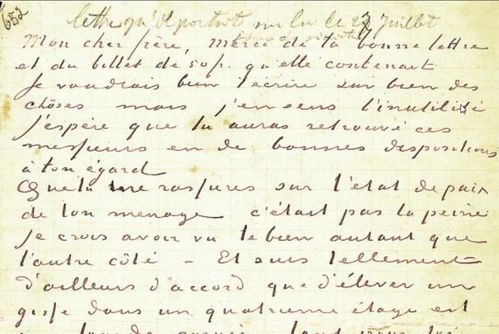 652
lettre qu'il portait sur lui le 27 Juillet
Mon cher frère, merci de ta bonne lettre
et du billet de 50 f. qu'elle contenait
Je voudrais bien t'écrire sur bien des
choses mais j'en sens l'inutilité
j'espère que tu auras retrouvé ces
messieurs en de bonnes dispositions
à ton égard
Que tu me rassures sur l'état de paix
de ton menage c'était pas la peine
je crois avoir vu le bien autant que
l'autre côté – Et suis tellement
d'ailleurs d'accord que d'élever un
gosse dans un quatrieme étage est